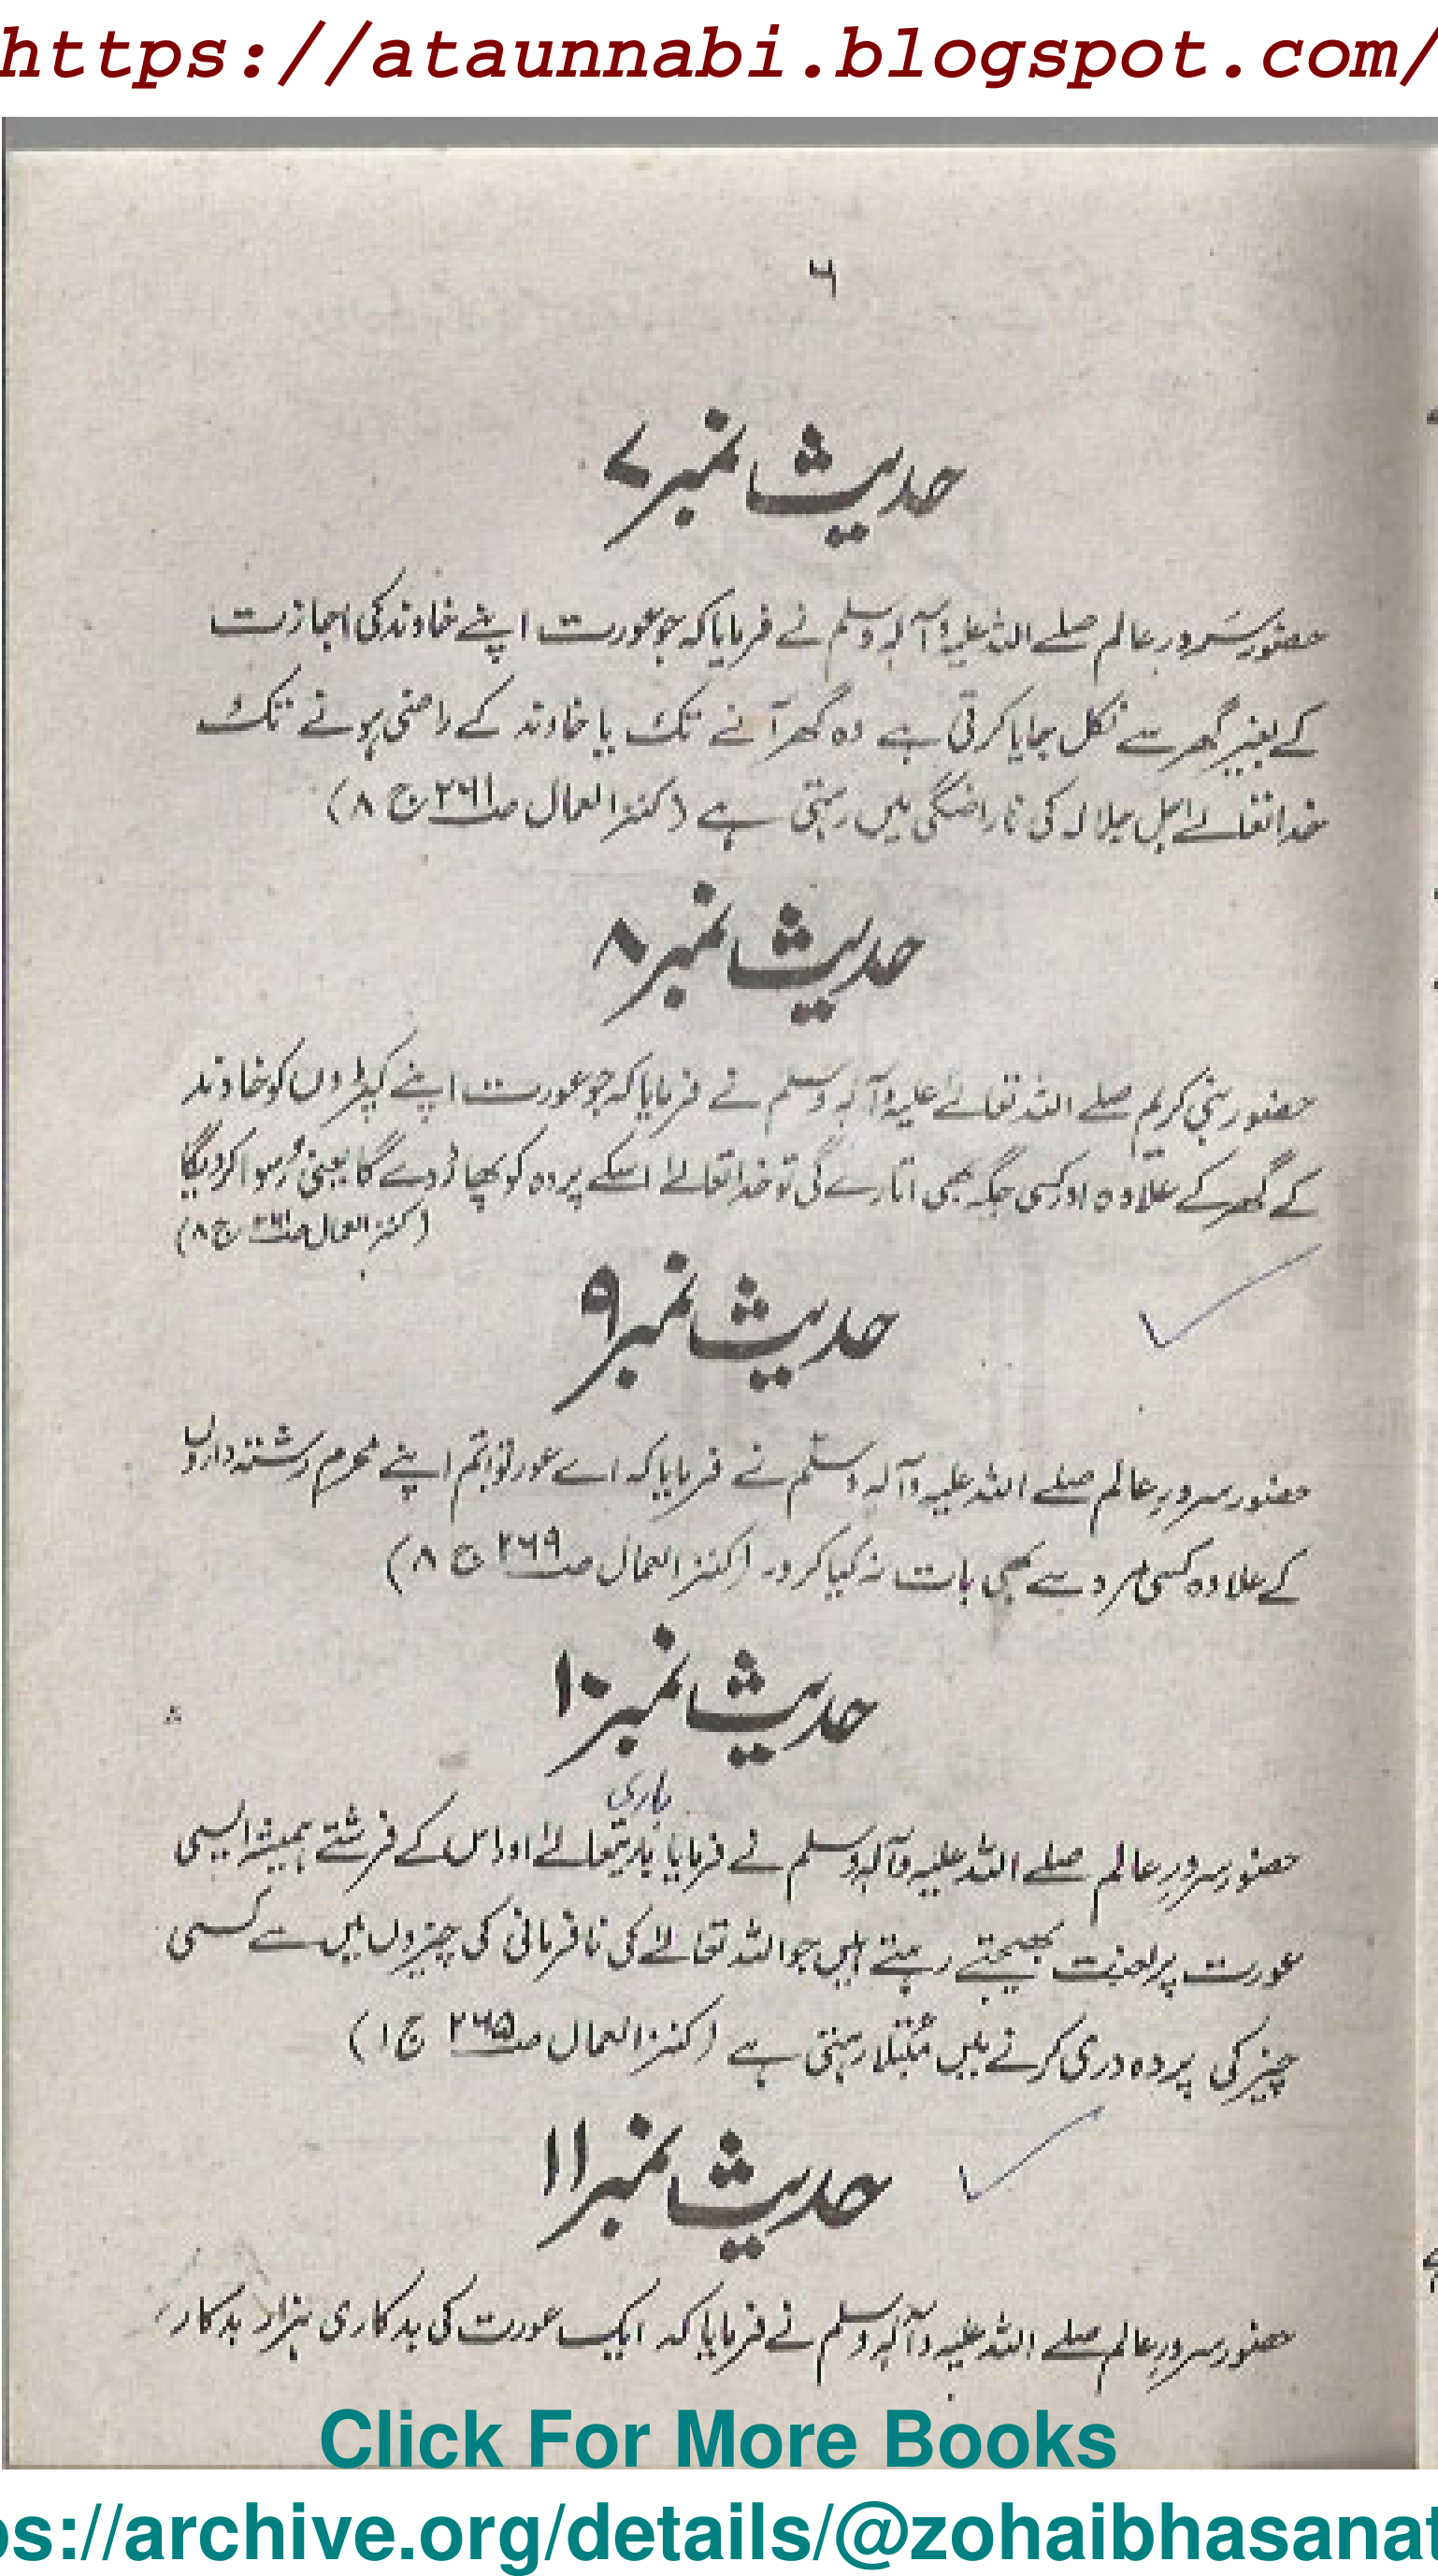 https://ataunnabi.blogspot.com/
٦
حدیث نمبر ۷
حضور سَرورِ عالم صلے اللہ علیہ وآلہٖ وسلم نے فرمایا کہ جو عورت اپنے خاوند کی اجازت
کے بغیر گھر سے نکل جایا کرتی ہے وہ گھر آنے تک یا خاوند کے راضی ہونے تک
خدا تعالےٰ اجل جلالہ کی ناراضگی میں رہتی ہے (کنز العمال صـ۲۶۱ ج ۸)
حدیث نمبر ۸
حضور نبی کریم صلے اللہ تعالےٰ علیہ وآلہٖ وسلم نے فرمایا کہ جو عورت اپنے کپڑوں کو خاوند
کے گھر کے علاوہ اور کسی جگہ بھی اتارے گی تو خدا تعالےٰ اسکے پردہ کو پھاڑ دے گا یعنی رُسوا کر دیگا
(کنز العمال ج ۸)
حدیث نمبر ۹
حضور سرورِ عالم صلے اللہ علیہ وآلہٖ وسلم نے فرمایا کہ اے عورتو! تم اپنے محرم رشتہ داروں
کے علاوہ کسی مرد سے بھی بات نہ کیا کرو۔ (کنز العمال صـ۲۶۹ ج ۸)
حدیث نمبر ۱۰
باری
حضور سرورِ عالم صلے اللہ علیہ وآلہٖ وسلم نے فرمایا باریتعالےٰ اور اس کے فرشتے ہمیشہ ایسی
عورت پر لعنت بھیجتے رہتے ہیں جو اللہ تعالےٰ کی نافرمانی کی چیزوں میں سے کسی
چیز کی پردہ دری کرنے میں مُبتلا رہتی ہے (کنز العمال صـ۲۶۵ ج ۱)
حدیث نمبر ۱۱
حضور سرورِ عالم صلے اللہ علیہ وآلہٖ وسلم نے فرمایا کہ ایک عورت کی بدکاری ہزار بدکار
Click For More Books
ps://archive.org/details/@zohaibhasanat